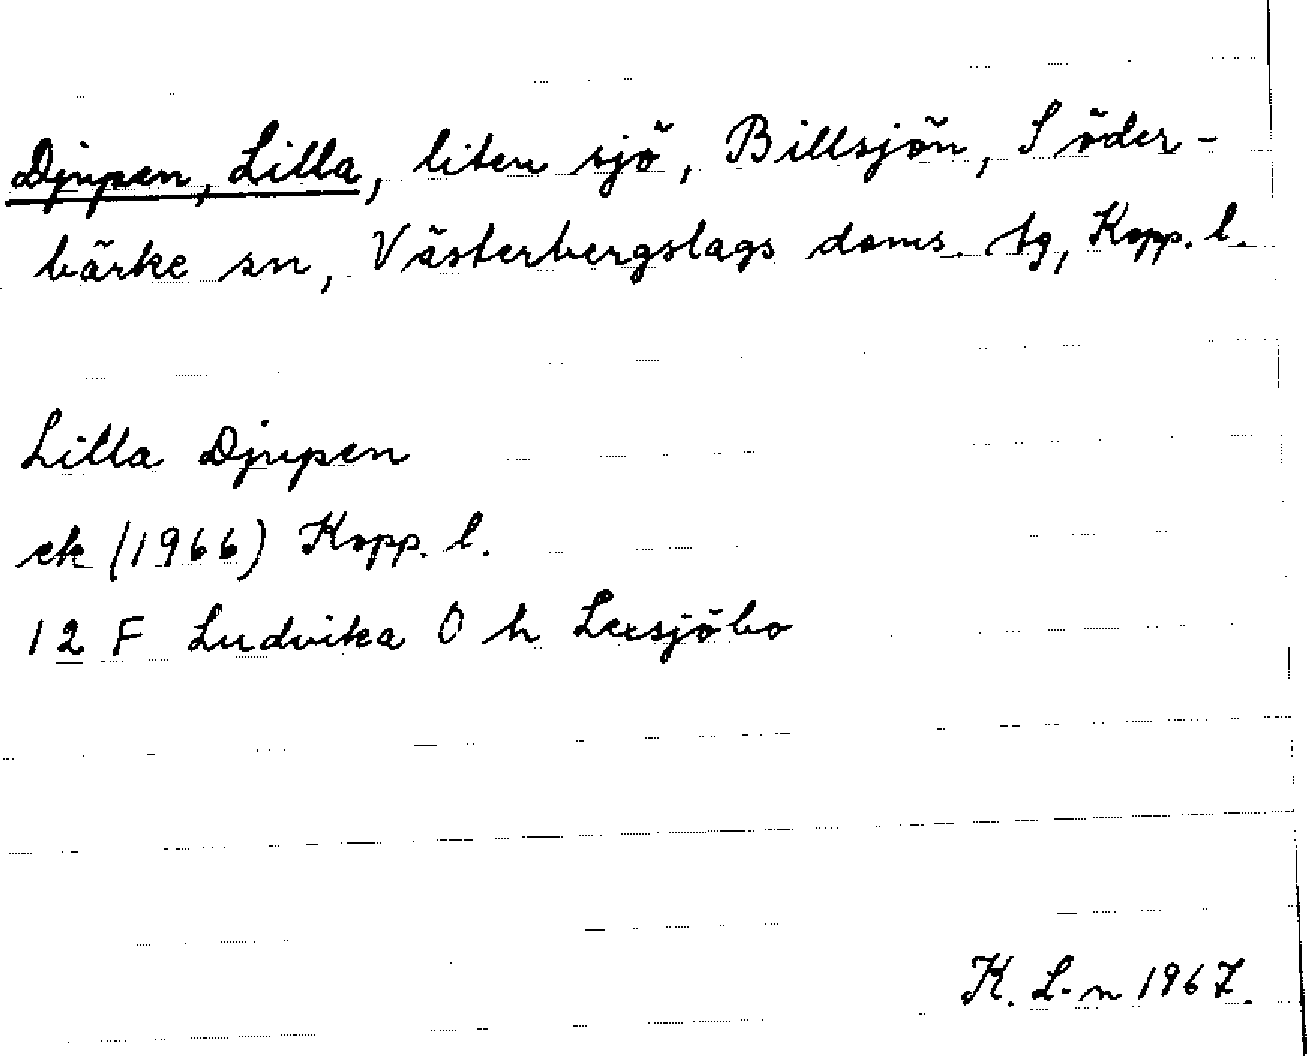 Djupen, Lilla, liten sjö, Billsjön, Söder-
bärke sn, Västerbergslags doms. tg, Kopp. l.
Lilla Djupen
ek (1966) Kopp. l.
12 F Ludvika O h Leksjöbo
K. L-n 1967.